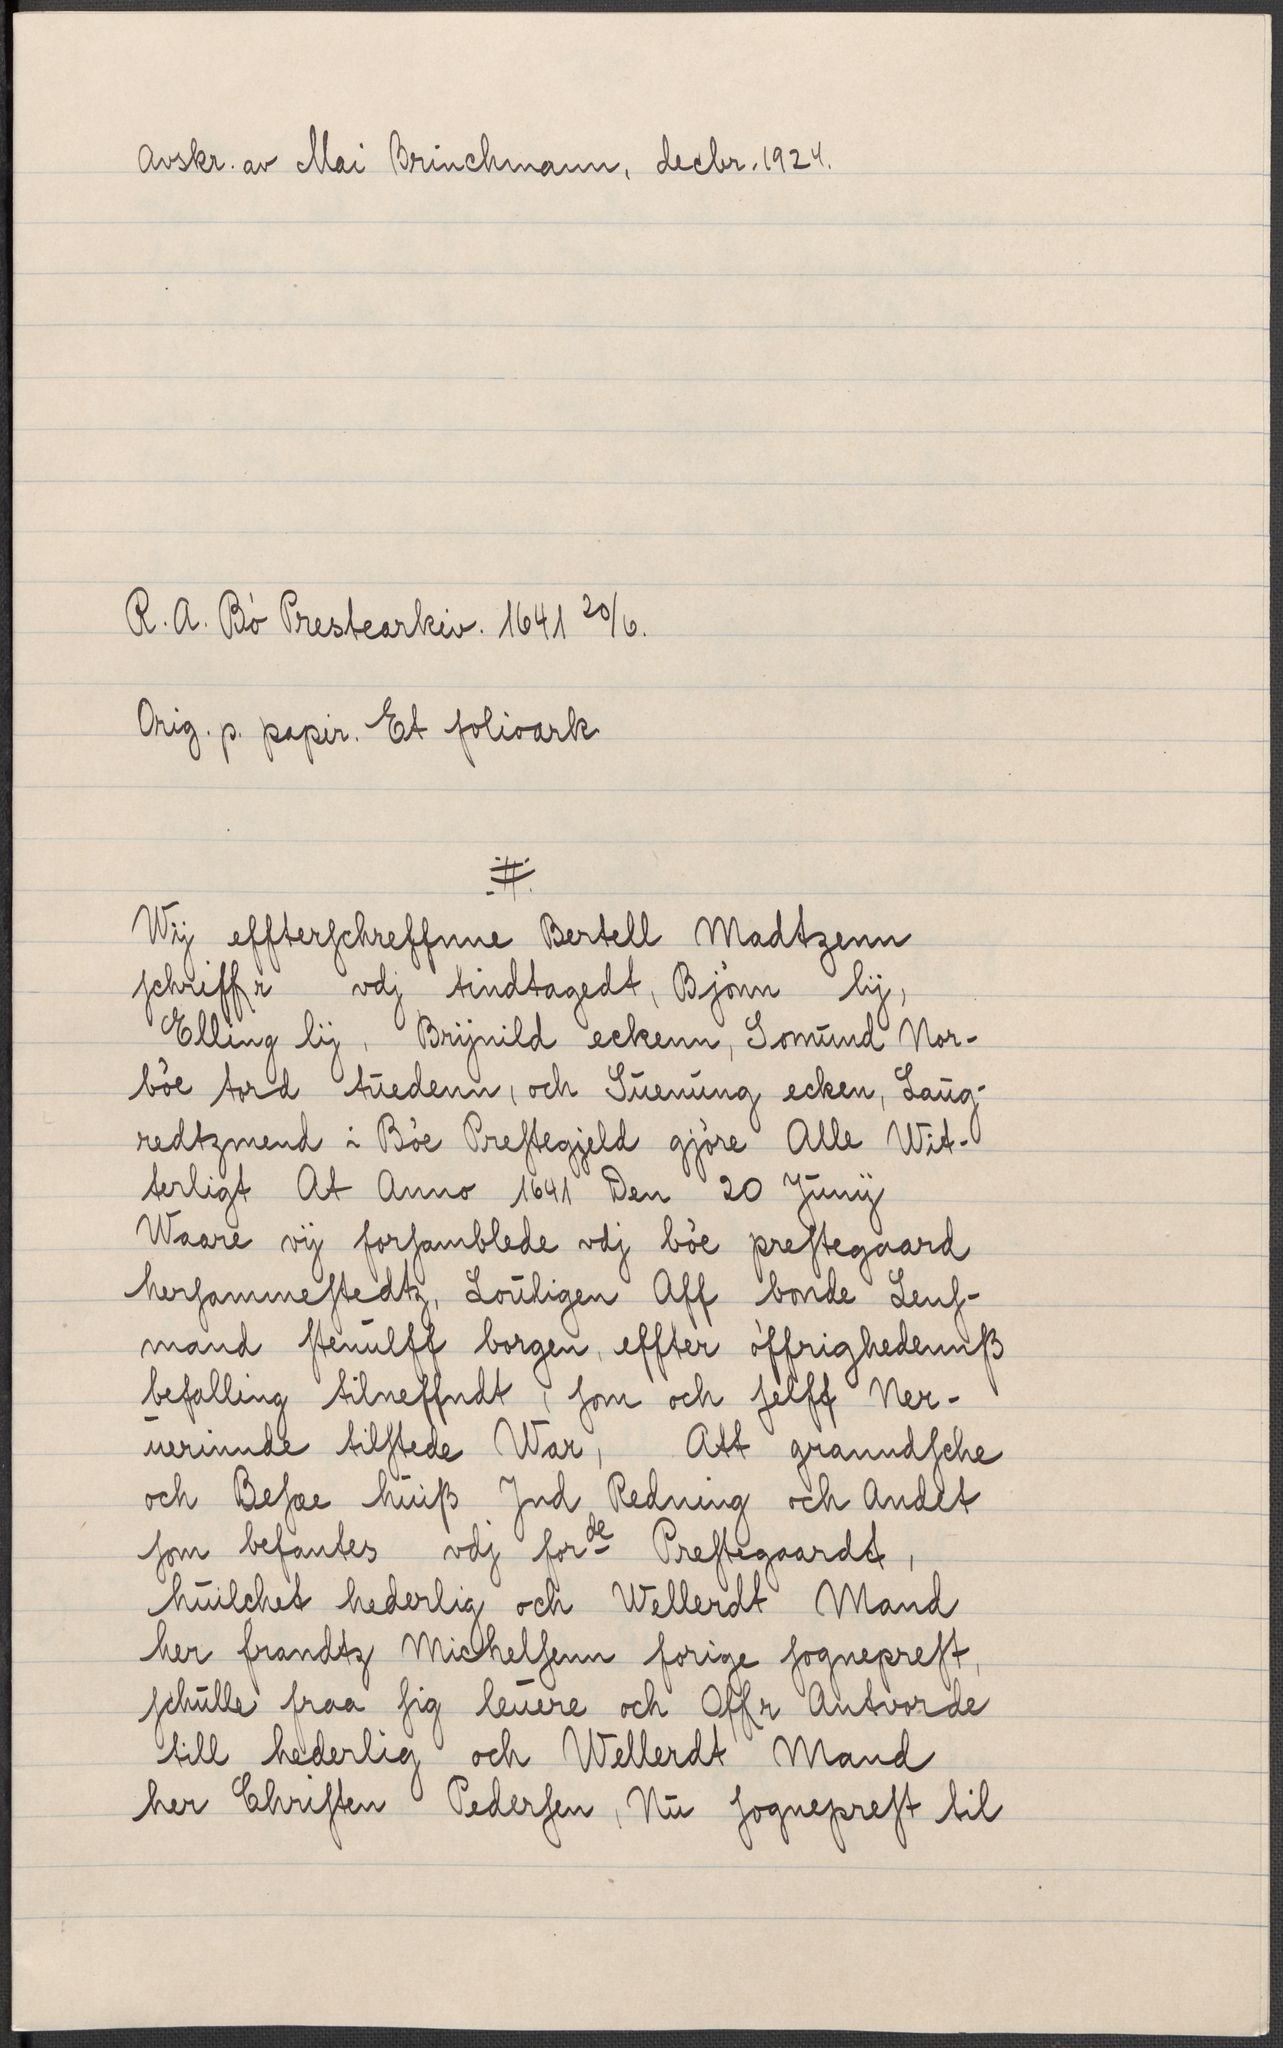 Avskr. av Mai Brinchmann, decbr. 1924.
R. A. Bö Prestearkiv. 1641 20/6.
Orig. p. papir. Et folioark
#
Wij effterſchreffnne Bertell Madtzenn
ſchriffr vdj tindtagedt, Bjönn lij,
Elling lij, Brÿnild eckenn, Gomŭnd Nor-
böe tord tŭedenn, och Sŭenŭng ecken, Laŭg-
redtzmend i Böe Preſtegjeld gjöre Alle Wit-
terligt At Anno 1641 Den 20 Jŭnij
Waare vij forſamblede vdj böe preſtegaard
herſammeſtedtz, Loŭligen Aff bonde Lenſ-
mand ſtenŭlff borgen, effter öffrighedennß
befalling tilneffndt, ſom och ſelff Ner-
ŭerinnde tilſtede War, Att granndſche
och Beſee hŭiß Jnd Redning och Andet
ſom befantes vdj forde Preſtegaardt,
hŭilchet hederlig och Wellerdt Mand
her frandtz Michelſenn forige ſognepreſt,
ſchŭlle fraa ſig leŭere och Offr Antvorde
till hederlig och Wellerdt Mand
her Chriſten Pederſen, Nŭ ſognepreſt til